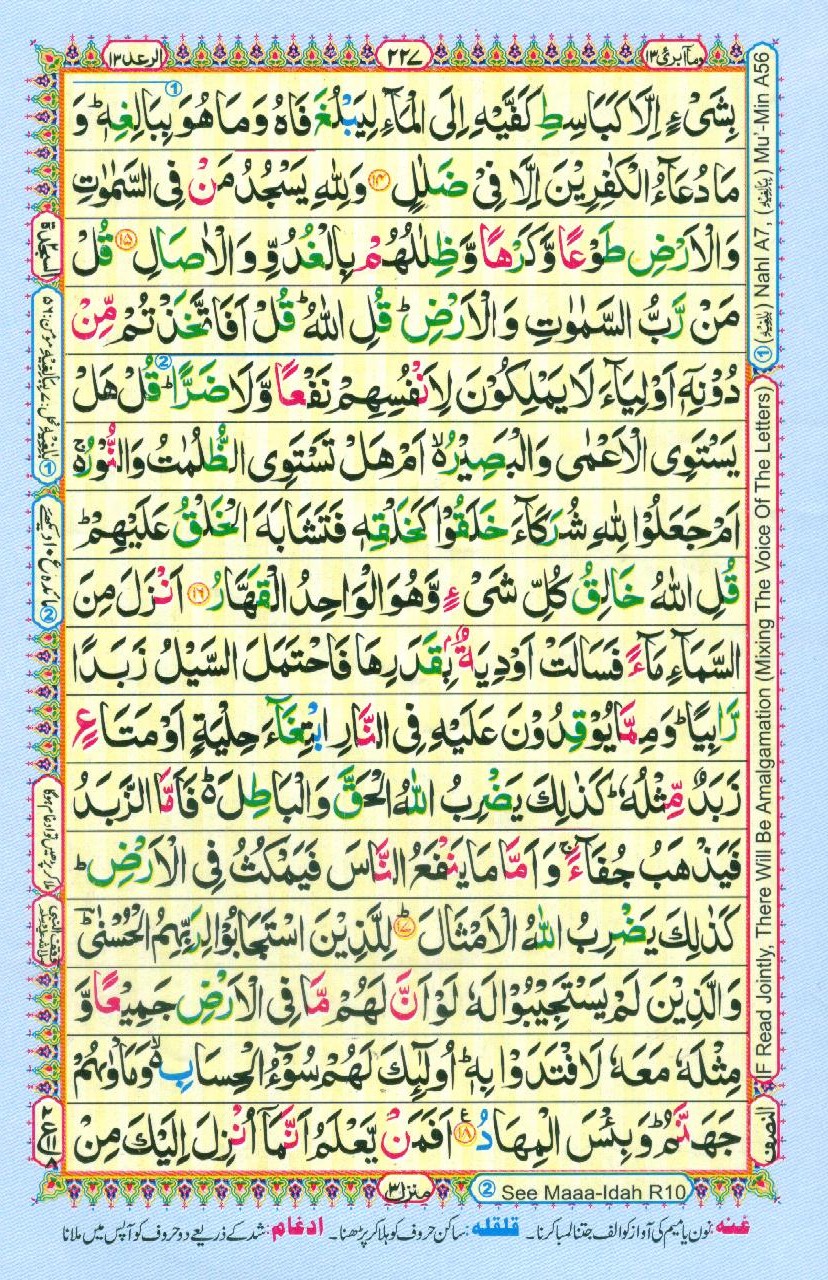 وما ابرئ ۱۳
۲۲۷
الرعد ۱۳
بِشَیْءٍ اِلَّا كَبَاسِطِ كَفَّیْهِ اِلَی الْمَآءِ لِیَبْلُغَ فَاهُ وَمَا هُوَ بِبَالِغِهٖ ؕ وَ
مَا دُعَآءُ الْكٰفِرِیْنَ اِلَّا فِیْ ضَلٰلٍ ۝۱۴ وَلِلّٰهِ یَسْجُدُ مَنْ فِی السَّمٰوٰتِ
وَالْاَرْضِ طَوْعًا وَّكَرْهًا وَّظِلٰلُهُمْ بِالْغُدُوِّ وَالْاٰصَالِ ۝۱۵ قُلْ
مَنْ رَّبُّ السَّمٰوٰتِ وَالْاَرْضِ ؕ قُلِ اللّٰهُ ؕ قُلْ اَفَاتَّخَذْتُمْ مِّنْ
دُوْنِهٖۤ اَوْلِیَآءَ لَا یَمْلِكُوْنَ لِاَنْفُسِهِمْ نَفْعًا وَّلَا ضَرًّا ؕ قُلْ هَلْ
یَسْتَوِی الْاَعْمٰی وَالْبَصِیْرُ ۙ۬ اَمْ هَلْ تَسْتَوِی الظُّلُمٰتُ وَالنُّوْرُ ۬ۚ
اَمْ جَعَلُوْا لِلّٰهِ شُرَكَآءَ خَلَقُوْا كَخَلْقِهٖ فَتَشَابَهَ الْخَلْقُ عَلَیْهِمْ ؕ
قُلِ اللّٰهُ خَالِقُ كُلِّ شَیْءٍ وَّهُوَ الْوَاحِدُ الْقَهَّارُ ۝۱۶ اَنْزَلَ مِنَ
السَّمَآءِ مَآءً فَسَالَتْ اَوْدِیَةٌۢ بِقَدَرِهَا فَاحْتَمَلَ السَّیْلُ زَبَدًا
رَّابِیًا ؕ وَمِمَّا یُوْقِدُوْنَ عَلَیْهِ فِی النَّارِ ابْتِغَآءَ حِلْیَةٍ اَوْ مَتَاعٍ
زَبَدٌ مِّثْلُهٗ ؕ كَذٰلِكَ یَضْرِبُ اللّٰهُ الْحَقَّ وَالْبَاطِلَ ۬ؕ فَاَمَّا الزَّبَدُ
فَیَذْهَبُ جُفَآءً ۚ وَاَمَّا مَا یَنْفَعُ النَّاسَ فَیَمْكُثُ فِی الْاَرْضِ ؕ
كَذٰلِكَ یَضْرِبُ اللّٰهُ الْاَمْثَالَ ؕ۝۱۷ لِلَّذِیْنَ اسْتَجَابُوْا لِرَبِّهِمُ الْحُسْنٰی ؔؕ
وَالَّذِیْنَ لَمْ یَسْتَجِیْبُوْا لَهٗ لَوْ اَنَّ لَهُمْ مَّا فِی الْاَرْضِ جَمِیْعًا وَّ
مِثْلَهٗ مَعَهٗ لَافْتَدَوْا بِهٖ ؕ اُولٰٓئِكَ لَهُمْ سُوْٓءُ الْحِسَابِ ۙ۬ وَمَاْوٰىهُمْ
جَهَنَّمُ ؕ وَبِئْسَ الْمِهَادُ ۝۱۸ اَفَمَنْ یَّعْلَمُ اَنَّمَاۤ اُنْزِلَ اِلَیْكَ مِنْ
منزل ۳
② See Maaa-Idah R10
غنه: نون یا میم کی آواز کو الف جتنا لمبا کرنا۔ قلقله: ساکن حروف کو ہلا کر پڑھنا۔ ادغام: شد کے ذریعے دو حروف کو آپس میں ملانا
① (بٰلِغِیْهِ) Nahl A7, (بِبَالِغِیْهِ) Mu'-Min A56
IF Read Jointly, There Will Be Amalgamation (Mixing The Voice Of The Letters)
النصف
السجدة
① بٰلِغِیْهِ نحل : ۷ بِبَالِغِیْهِ مومن : ۵۶
② مائدہ ع ۱۰ دیکھیے
ملا کر پڑھیں تو ادغام ہوگا